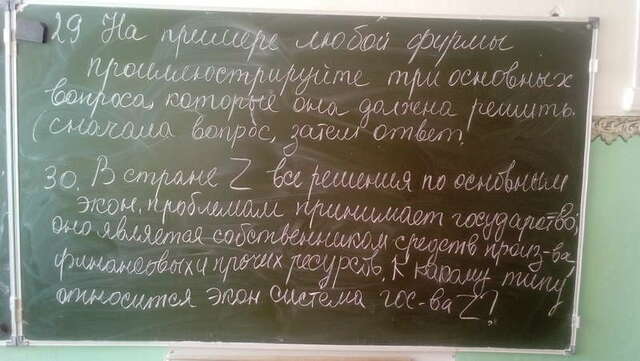 29 На примере любой фирмы
проиллюстрируйте три основных
вопроса, которые она должна решить.
(сначала вопрос, затем ответ.
30. В стране Z все решения по основным
экон. проблемам принимает государство;
оно является собственником средств произ-ва,
финансовых и прочих ресурсов. К какому типу
относится экон система гос-ва Z?